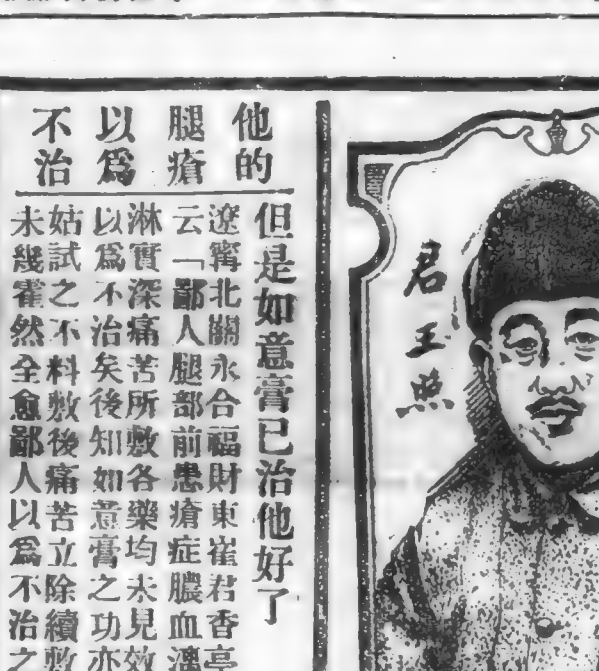 君玉照
他的
腿瘡
以爲
不治
但是如意膏已治他好了
遼寧北關永合福財東崔君香亭
云「鄙人腿部前患瘡症膿血
淋實深痛苦所敷各藥均未見效
以爲不治矣後知如意膏之功亦
姑試之不料敷後痛苦立除續敷
未幾霍然全愈鄙人以爲不治之